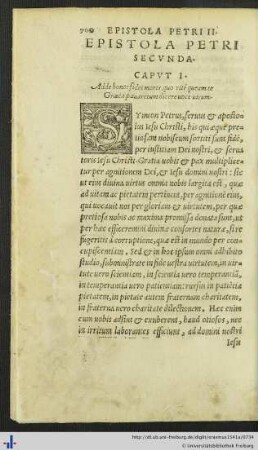 EPISTOLA PETRI II.
EPISTOLA PETRI
SECVNDA.
CAPVT I.
SYmon Petrus, seruus & apostolus
Iesu Christi, his qui æque preciosam
nobiscum sortiti sunt fidē,
per iustitiam Dei nostri, & seruatoris
Iesu Christi. Gratia uobis & pax multiplicetur
per agnitionem Dei, & Iesu domini nostri: sicut
eius diuina uirtus omnia nobis largita est, quæ
ad uitam ac pietatem pertineāt, per agnitionē eius,
qui uocauit nos per gloriam & uirtutem, per quæ
pretiosa nobis ac maxima promissa donata sunt, ut
per hæc efficeremini diuinæ consortes naturæ, si refugeritis
à corruptione, quæ est in mundo per concupiscentiam,
Sed & in hoc ipsum omni adhibito
studio, subministrate in fide uestra uirtutem, in uirtute
uero scientiam, in scientia uero temperantiā,
in temperantia uero patientiam: rursum in patiētia
pietatem, in pietate autem fraternam charitatem,
in fraterna uero charitate dilectionem. Hæc enim
cum uobis adsint & exuberent, haud otiosos, neq
in irritum laborantes efficiunt, ad domini nostri
Iesu
http://dl.ub.uni-freiburg.de/diglit/erasmus1541a/0734
© Universitätsbibliothek Freiburg